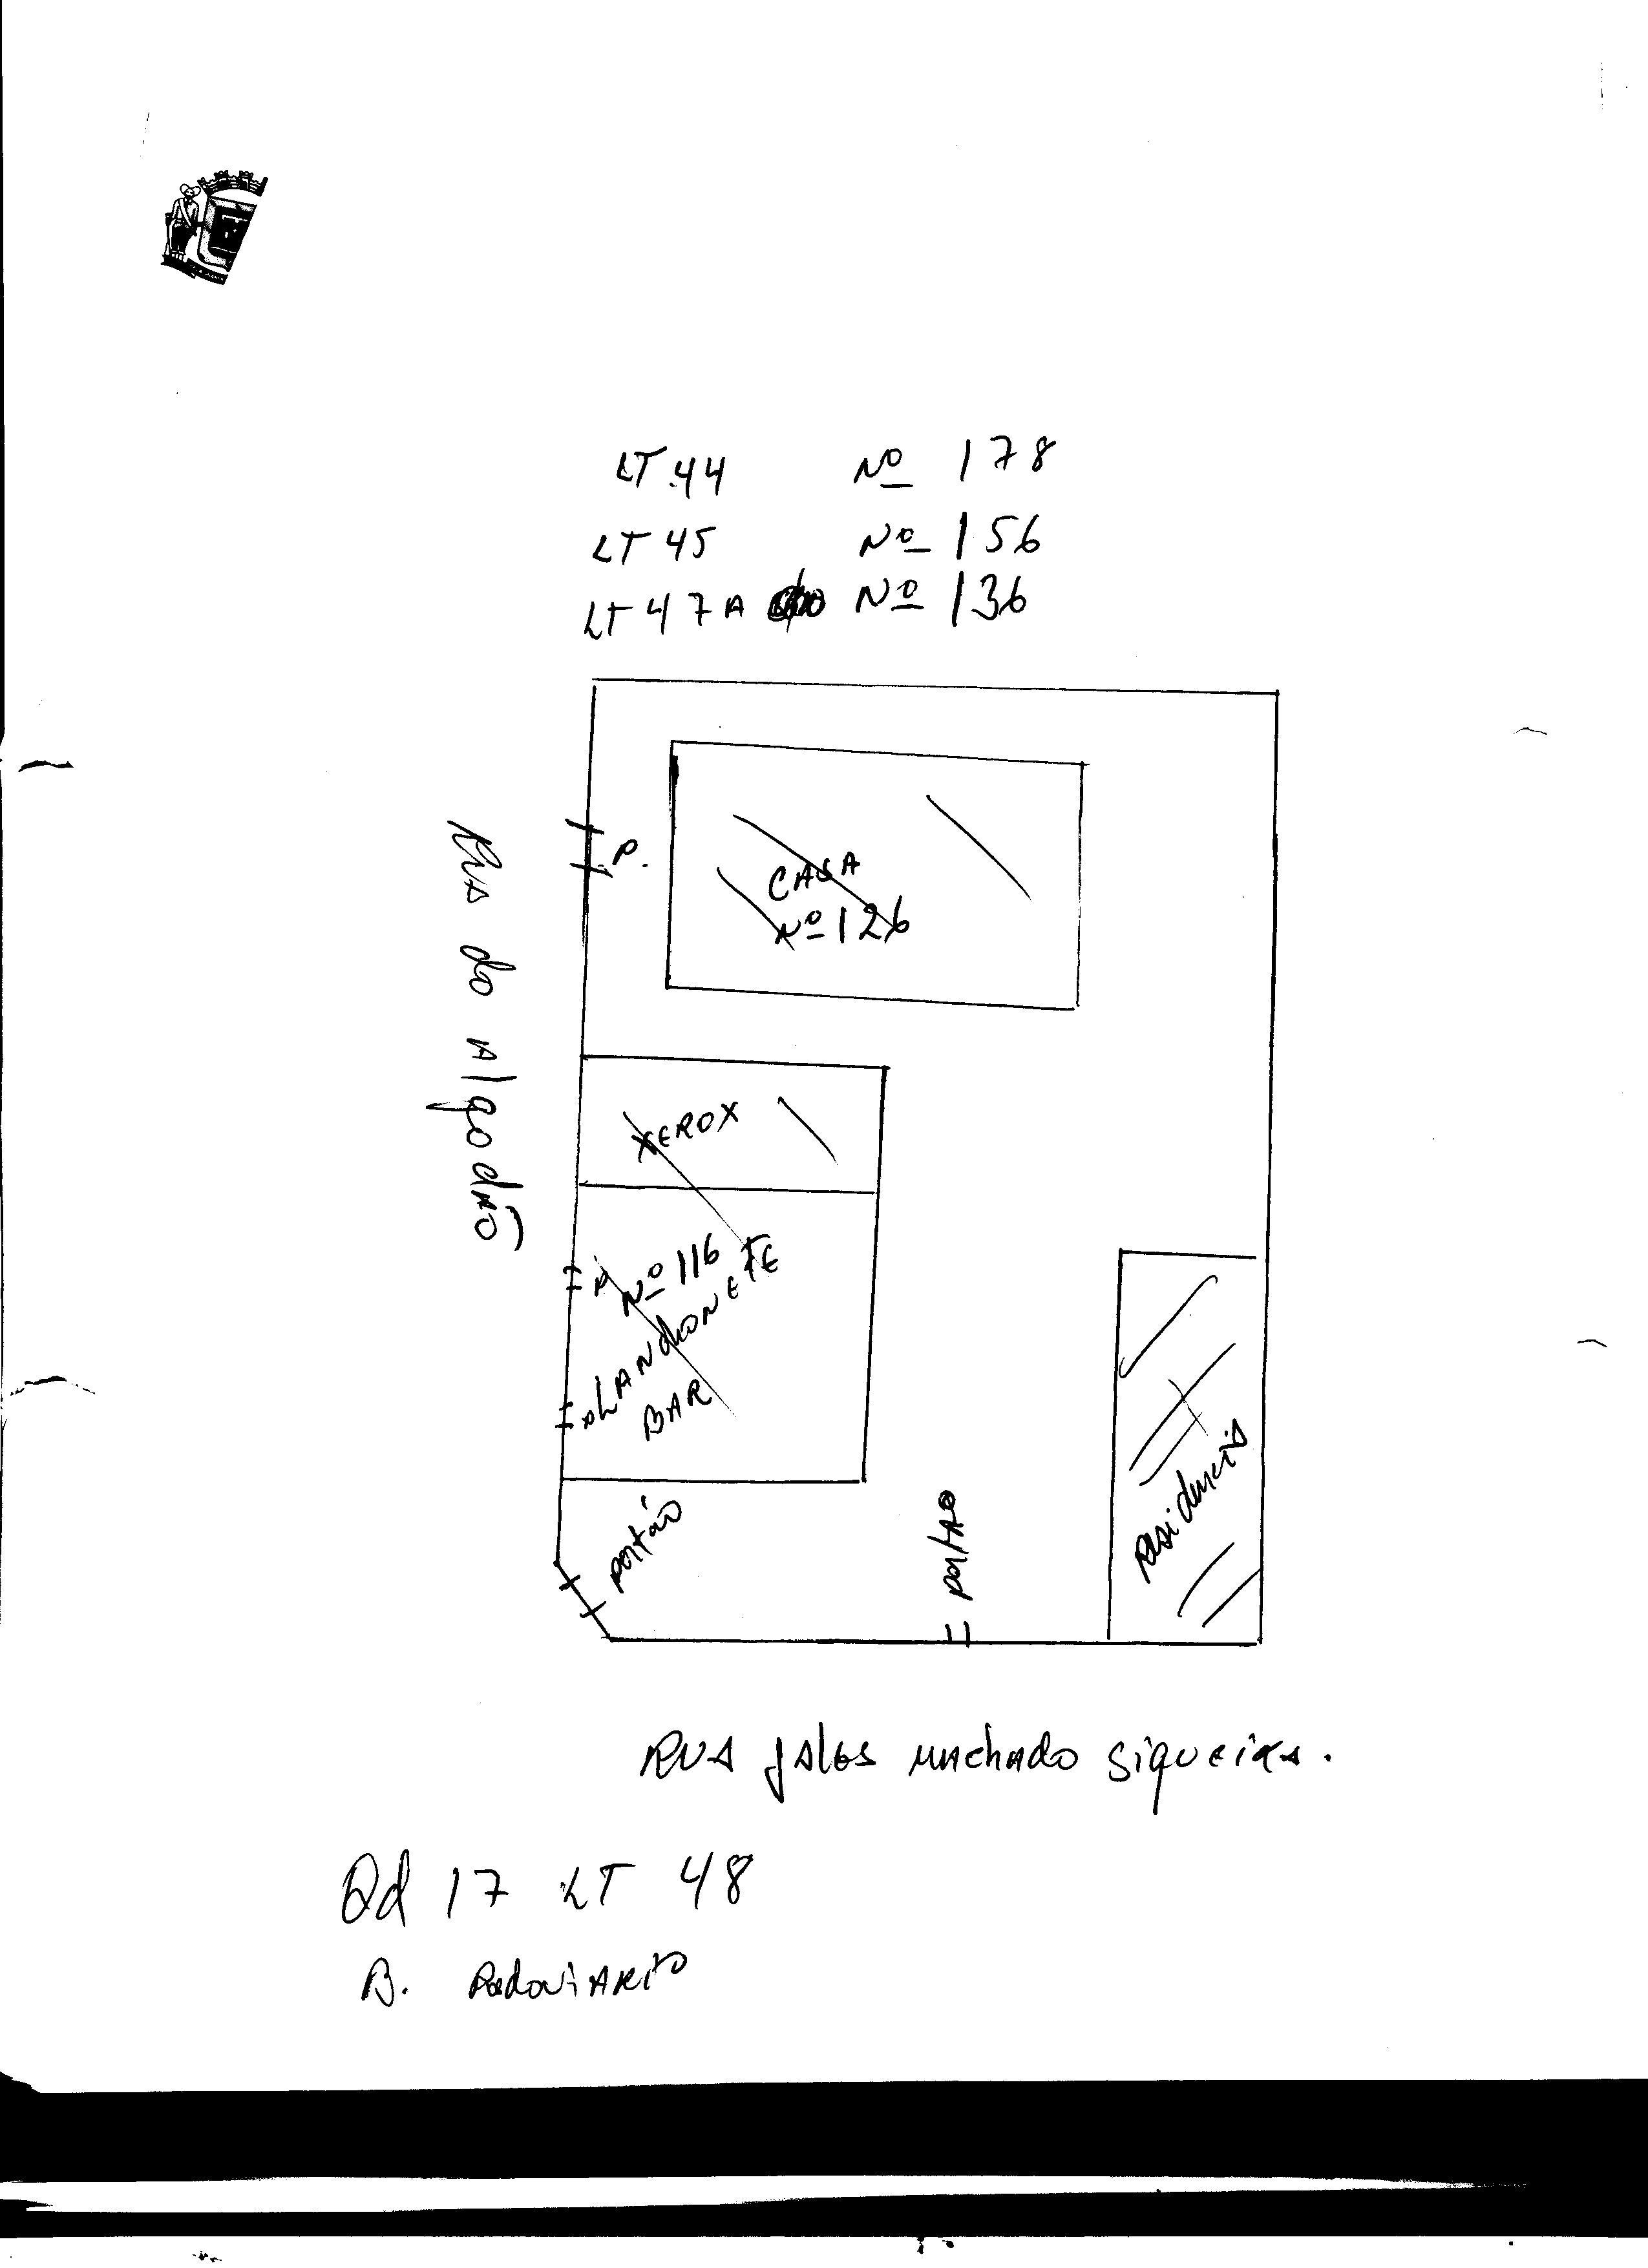 LT.44 Nº 178
LT 45 Nº 156
LT 47A Nº 136
P.
CASA
Nº 126
Rua do Algodão
XEROX
P Nº 116
LANCHONETE
BAR
portão
portão
Residencia
RUA Jales machado siqueira.
Qd 17 LT 48
B. Rodoviario